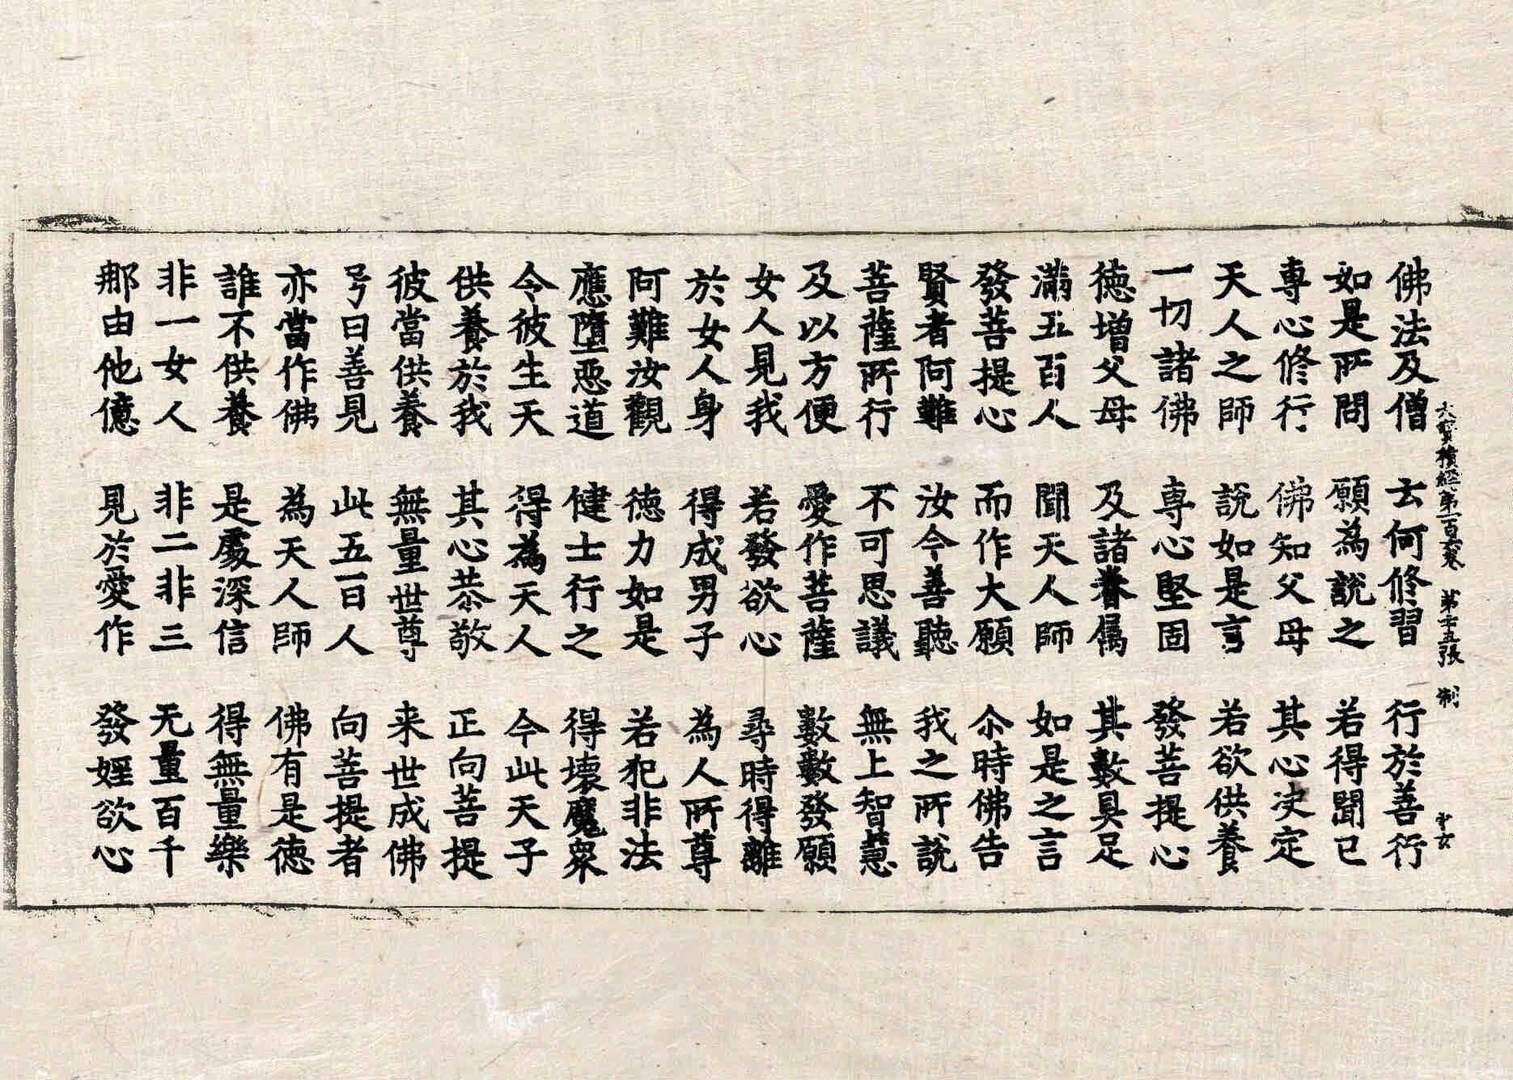 大寳積經第一百六卷 第十五張 制
佛法及僧 云何修習 行於善行
如是所問 願為說之 若得聞已
專心修行 佛知父母 其心决定
天人之師 說如是言 若欲供養
一切諸佛 専心堅固 發菩提心
德增父母 及諸眷屬 其數具足
滿五百人 聞天人師 如是之言
發菩提心 而作大願 尒時佛告
賢者阿難 汝今善聽 我之所說
菩薩所行 不可思議 無上智慧
及以方便 愛作菩薩 數數發願
女人見我 若發欲心 尋時得離
於女人身 得成男子 為人所尊
阿難汝觀 德力如是 若犯非法
應墮惡道 健士行之 得壞魔衆
令彼生天 得為天人 今此天子
供養於我 其心恭敬 正向菩提
彼當供養 無量世尊 来世成佛
号曰善見 此五百人 向菩提者
亦當作佛 為天人師 佛有是德
誰不供養 是處深信 得無量樂
非一女人 非二非三 无量百千
那由他億 見於愛作 發婬欲心